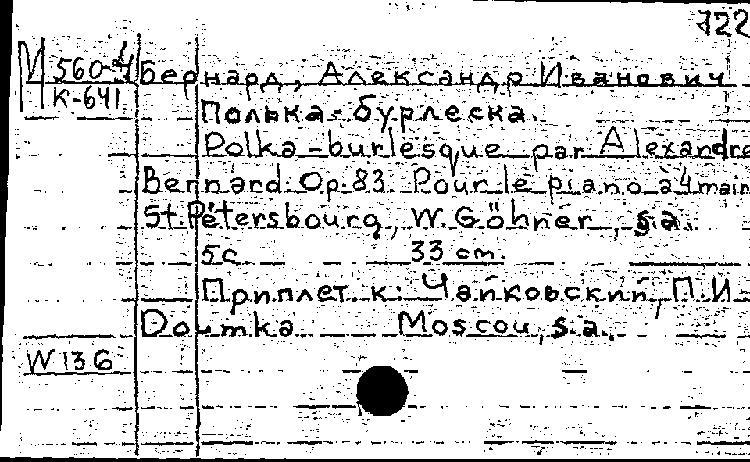 722
М 560-4 Бернард, Александр Иванович
К-641
Полька-бурлеска.
Polka-burlesque par Alexandre
Bernard. Op.83. Pour le piano à 4 main
St.Pétersbourg, W. Göhner, s.a.
5 c. 33 cm.
Приплет. к: Чайковский, П.И
Doumka Moscou, s.a.
W 136